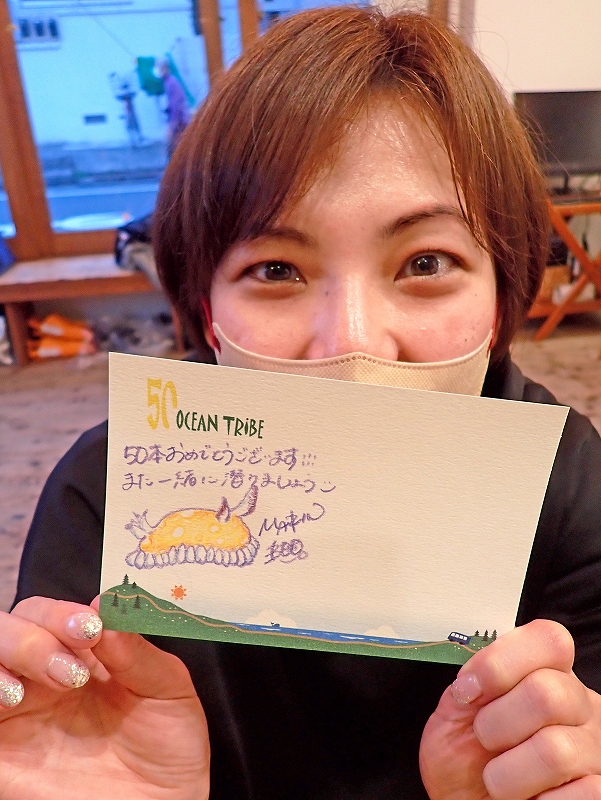 50 OCEAN TRIBE
50本おめでとうございます!!!
また一緒に潜りましょう